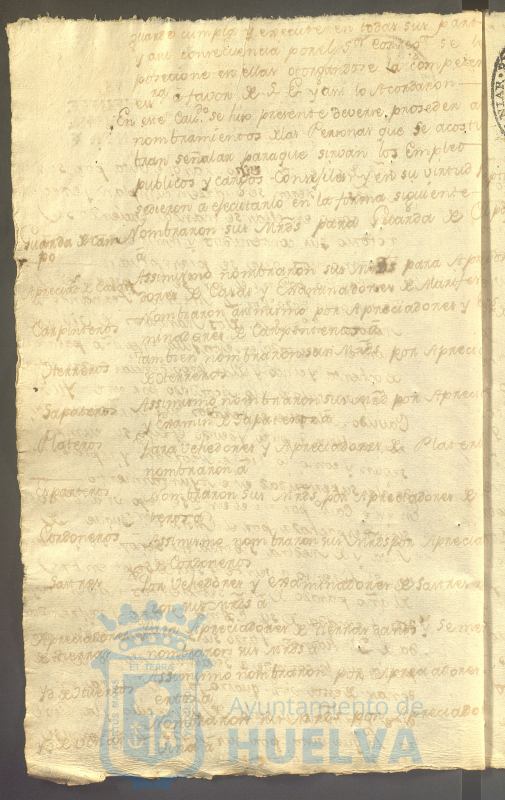 guarde cumpla y execute en todas sus part
y en consecuencia por el Sr. Correxr. se
posecione en ellas otorgandose la competen
a favor de S. E. y asi lo Acordaron
En este Cavdo. se hizo presente deverse proseder a
nombramientos de las Personas que se acostu
bran señalar para que sirvan los Empleos
publicos y cargos Consejiles y en su virtud
sedieron a ejecutarlo en la forma siguiente
Guarda de Cam
po
Nombraron sus Mrds. para Guarda de
Apreciads. de Casas
Assimismo nombraron sus Mrds para Aprecia
dores de Casas y Examinadores de
Carpinteros
Nombraron assimismo por Apreciadores y
minadores de Carpinteros a
Herreros
tambien nombraron sus Mrds. por Aprecia
de Herreros
Sapateros
Assimismo nombraron sus Mrds por Aprecia
y Examin. de Sapateros a
Plateros
Para Vehedores y Apreciadores de Plateros
nombraron a
Esparteros
Nombraron sus Mrds. por Apreciadores de
teros a
Cordoneros
Assimismo nombraron sus Mrds. por Aprecia
de Cordoneros
Sastres
Por Vehedores y Examinadores de Sastres
sus Mrds a
Apreciadores
de tierras
Apreciadores de tierras daños y
nombraron sus Mrds a
Yd. de Huertas
Assimismo nombraron por Apreciadores
ertas a
Yd. de Viñas
Nombraron sus Mrds por Apreciado
viñas a
NIAR
EL TERRÆ
Ayuntamiento de
HUELVA